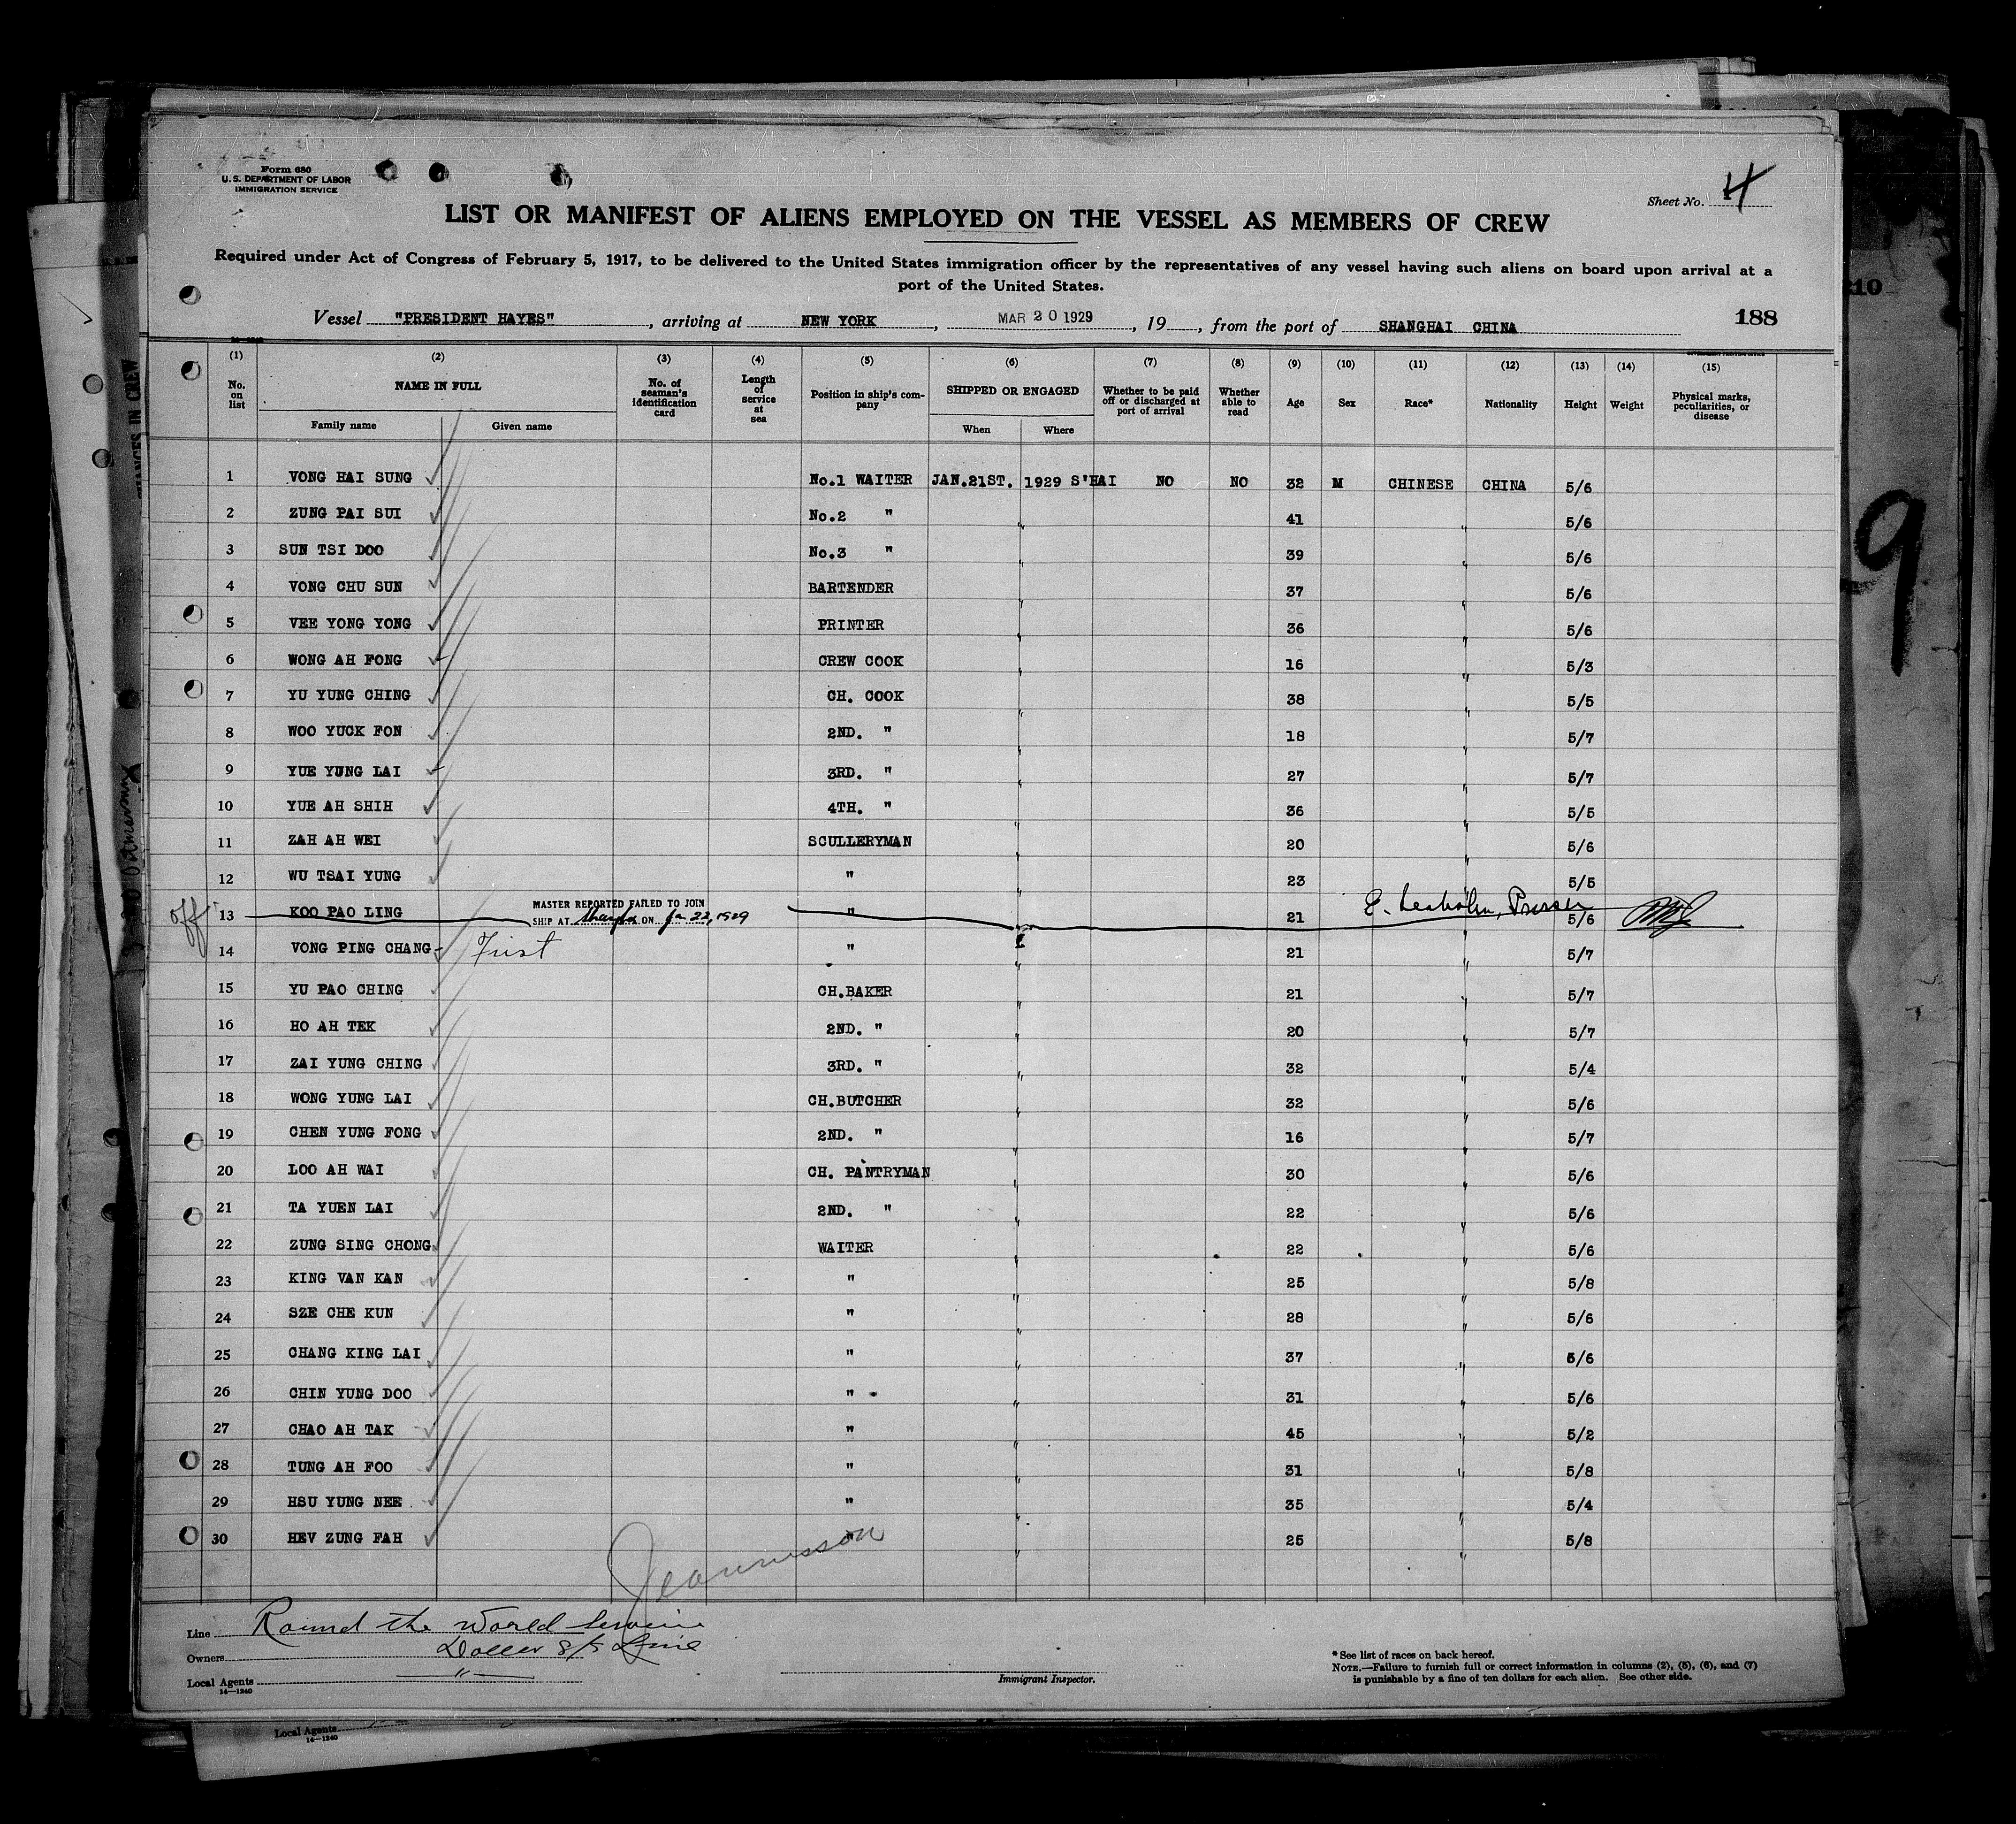 Form 680
U. S. DEPARTMENT OF LABOR
IMMIGRATION SERVICE
Sheet No. 4
LIST OR MANIFEST OF ALIENS EMPLOYED ON THE VESSEL AS MEMBERS OF CREW
Required under Act of Congress of February 5, 1917, to be delivered to the United States immigration officer by the representatives of any vessel having such aliens on board upon arrival at a
port of the United States.
Vessel "PRESIDENT HAYES", arriving at NEW YORK, MAR 20 1929, 19, from the port of SHANGHAI CHINA
188
(1) (2) (3) (4) (5) (6) (7) (8) (9) (10) (11) (12) (13) (14) (15)
No. on list NAME IN FULL No. of seaman's identification card Length of service at sea Position in ship's company SHIPPED OR ENGAGED Whether to be paid off or discharged at port of arrival Whether able to read Age Sex Race* Nationality Height Weight Physical marks, peculiarities, or disease
Family name Given name When Where
1 VONG HAI SUNG No.1 WAITER JAN.21ST. 1929 S'HAI NO NO 32 M CHINESE CHINA 5/6
2 ZUNG PAI SUI No.2 " " 41 " 5/6
3 SUN TSI DOO No.3 " " 39 " 5/6
4 VONG CHU SUN BARTENDER " 37 " 5/6
5 VEE YONG YONG PRINTER " 36 " 5/6
6 WONG AH FONG CREW COOK " 16 " 5/3
7 YU YUNG CHING CH. COOK " 38 " 5/5
8 WOO YUCK FON 2ND. " " 18 " 5/7
9 YUE YUNG LAI 3RD. " " 27 " 5/7
10 YUE AH SHIH 4TH. " " 36 " 5/5
11 ZAH AH WEI SCULLERYMAN " 20 " 5/6
12 WU TSAI YUNG " " 23 " 5/5
off 13 KOO PAO LING MASTER REPORTED FAILED TO JOIN " " 21 " 5/6
SHIP AT Shanghai ON Jan 22, 1929
14 VONG PING CHANG First " " 21 " 5/7
15 YU PAO CHING CH.BAKER " 21 " 5/7
16 HO AH TEK 2ND. " " 20 " 5/7
17 ZAI YUNG CHING 3RD. " " 32 " 5/4
18 WONG YUNG LAI CH.BUTCHER " 32 " 5/6
19 CHEN YUNG FONG 2ND. " " 16 " 5/7
20 LOO AH WAI CH. PANTRYMAN " 30 " 5/6
21 TA YUEN LAI 2ND. " " 22 " 5/6
22 ZUNG SING CHONG WAITER " 22 " 5/6
23 KING VAN KAN " " 25 " 5/8
24 SZE CHE KUN " " 28 " 5/6
25 CHANG KING LAI " " 37 " 5/6
26 CHIN YUNG DOO " " 31 " 5/6
27 CHAO AH TAK " " 45 " 5/2
28 TUNG AH FOO " " 31 " 5/8
29 HSU YUNG NEE " " 35 " 5/4
30 HEV ZUNG FAH " " 25 " 5/8
Line Round the World Service
Owners Dollar S/S Line
Local Agents "
14—1240
Immigrant Inspector.
* See list of races on back hereof.
NOTE.—Failure to furnish full or correct information in columns (2), (5), (6), and (7)
is punishable by a fine of ten dollars for each alien. See other side.
Local Agents
14—1240
210
9